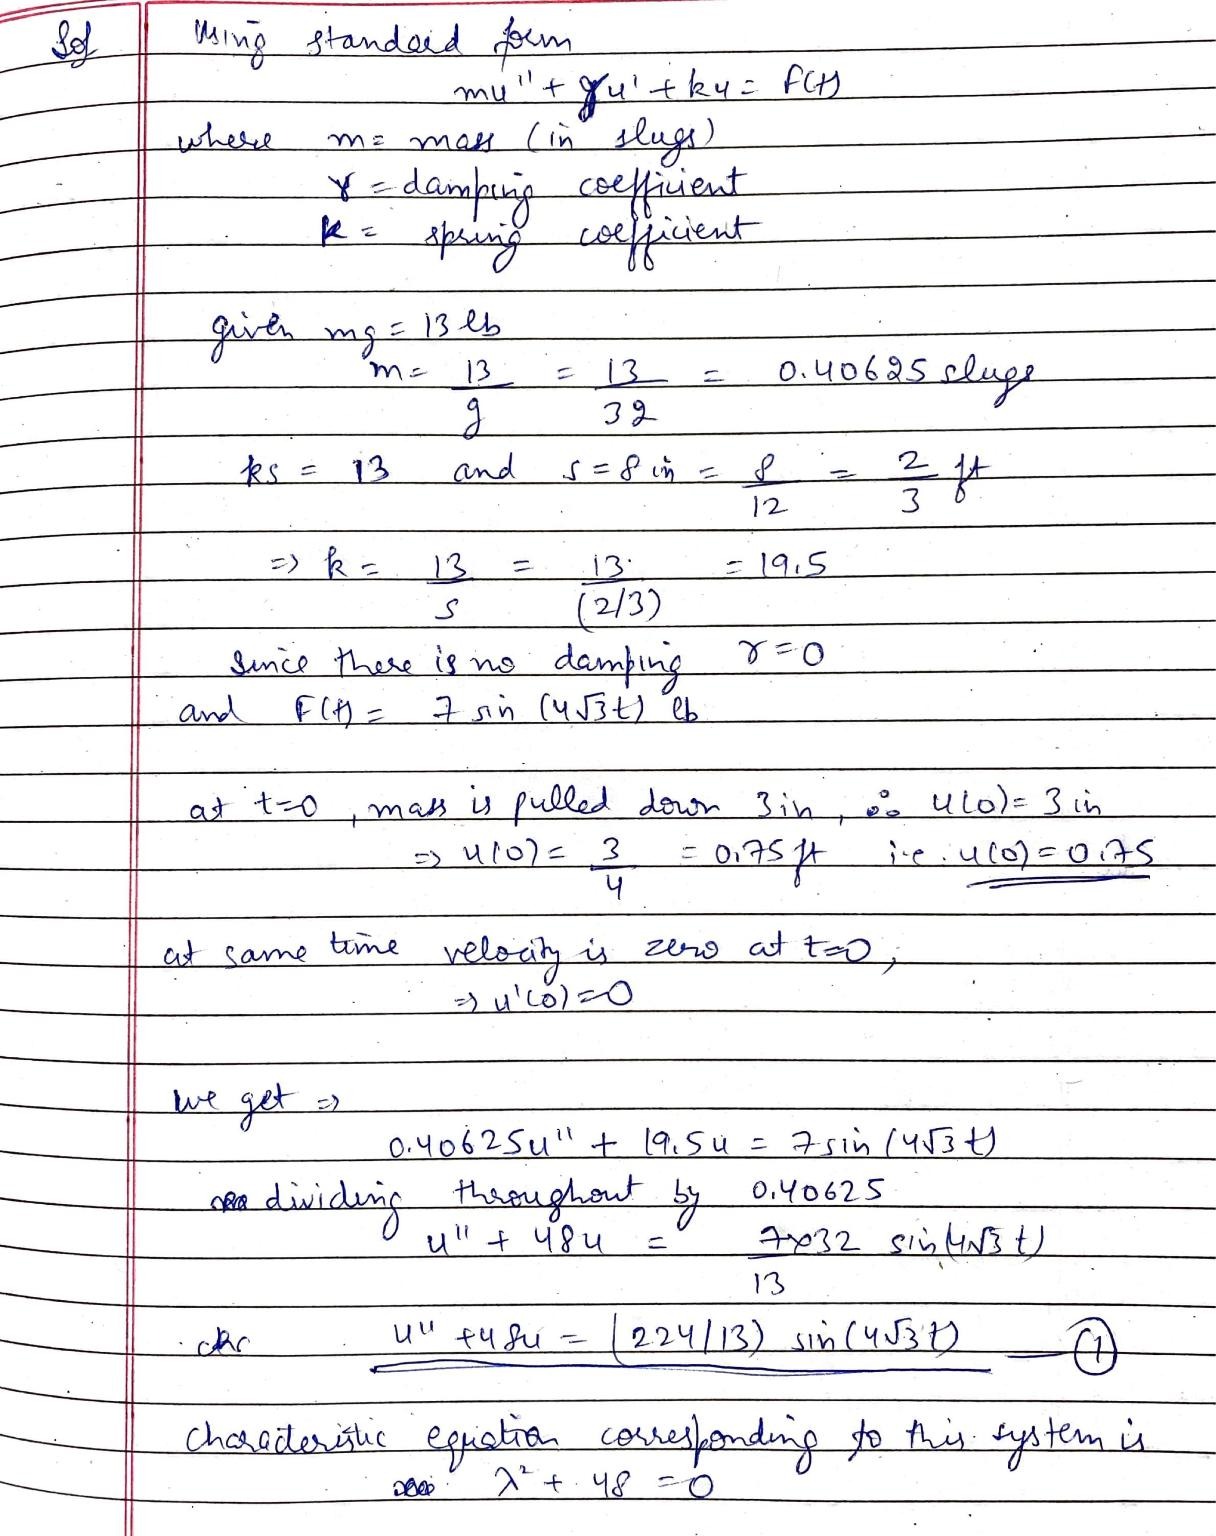 Sol Using standard form
mu'' + γu' + ku = F(t)
where m = mass (in slugs)
γ = damping coefficient
k = spring coefficient
given mg = 13 lb
m = 13/g = 13/32 = 0.40625 slugs
ks = 13 and s = 8 in = 8/12 = 2/3 ft
=> k = 13/s = 13/(2/3) = 19.5
Since there is no damping γ = 0
and F(t) = 7 sin (4√3t) lb
at t=0, mass is pulled down 3 in, ∴ u(0) = 3 in
=> u(0) = 3/4 = 0.75 ft i.e. u(0) = 0.75
at same time velocity is zero at t=0,
=> u'(0) = 0
we get =>
0.40625u'' + 19.5u = 7 sin (4√3 t)
dividing throughout by 0.40625
u'' + 48u = 7x32/13 sin (4√3 t)
u'' + 48u = (224/13) sin (4√3 t) — (1)
characteristic equation corresponding to this system is
λ² + 48 = 0